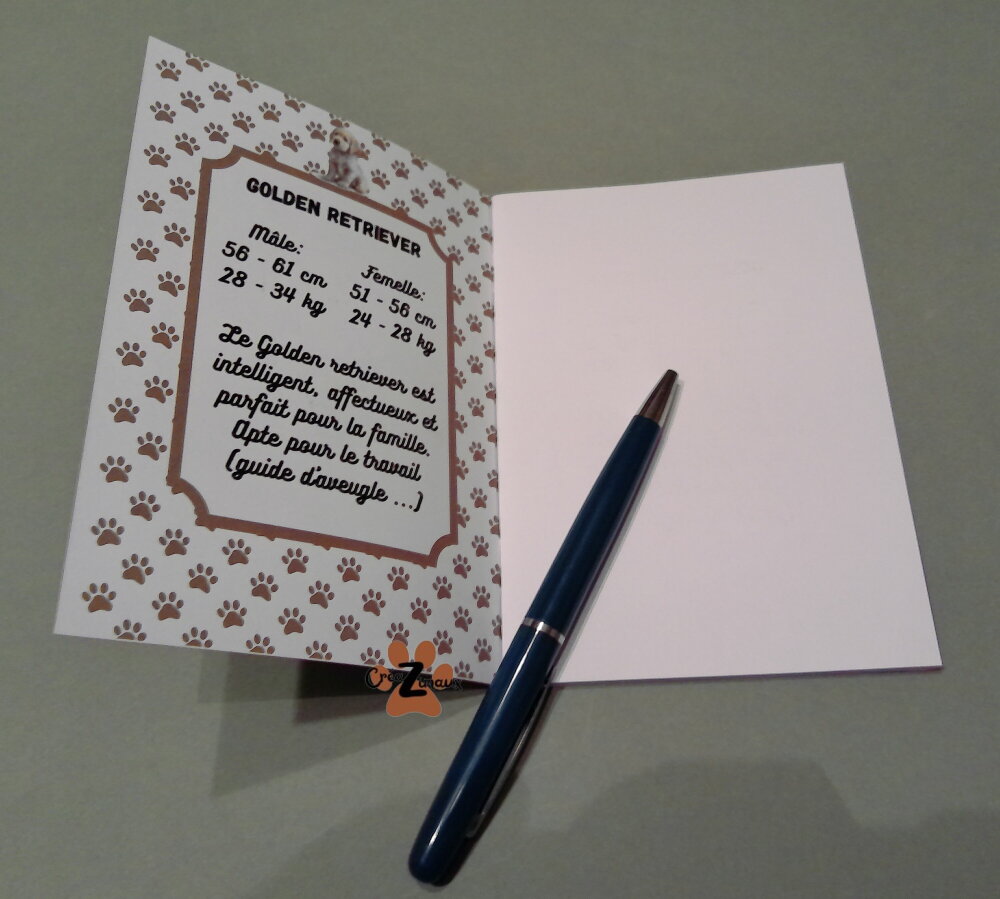 GOLDEN RETRIEVER
Mâle:
56 - 61 cm
28 - 34 kg
Femelle:
51 - 56 cm
24 - 28 kg
Le Golden retriever est
intelligent, affectueux et
parfait pour la famille.
Apte pour le travail
(guide d'aveugle ...)